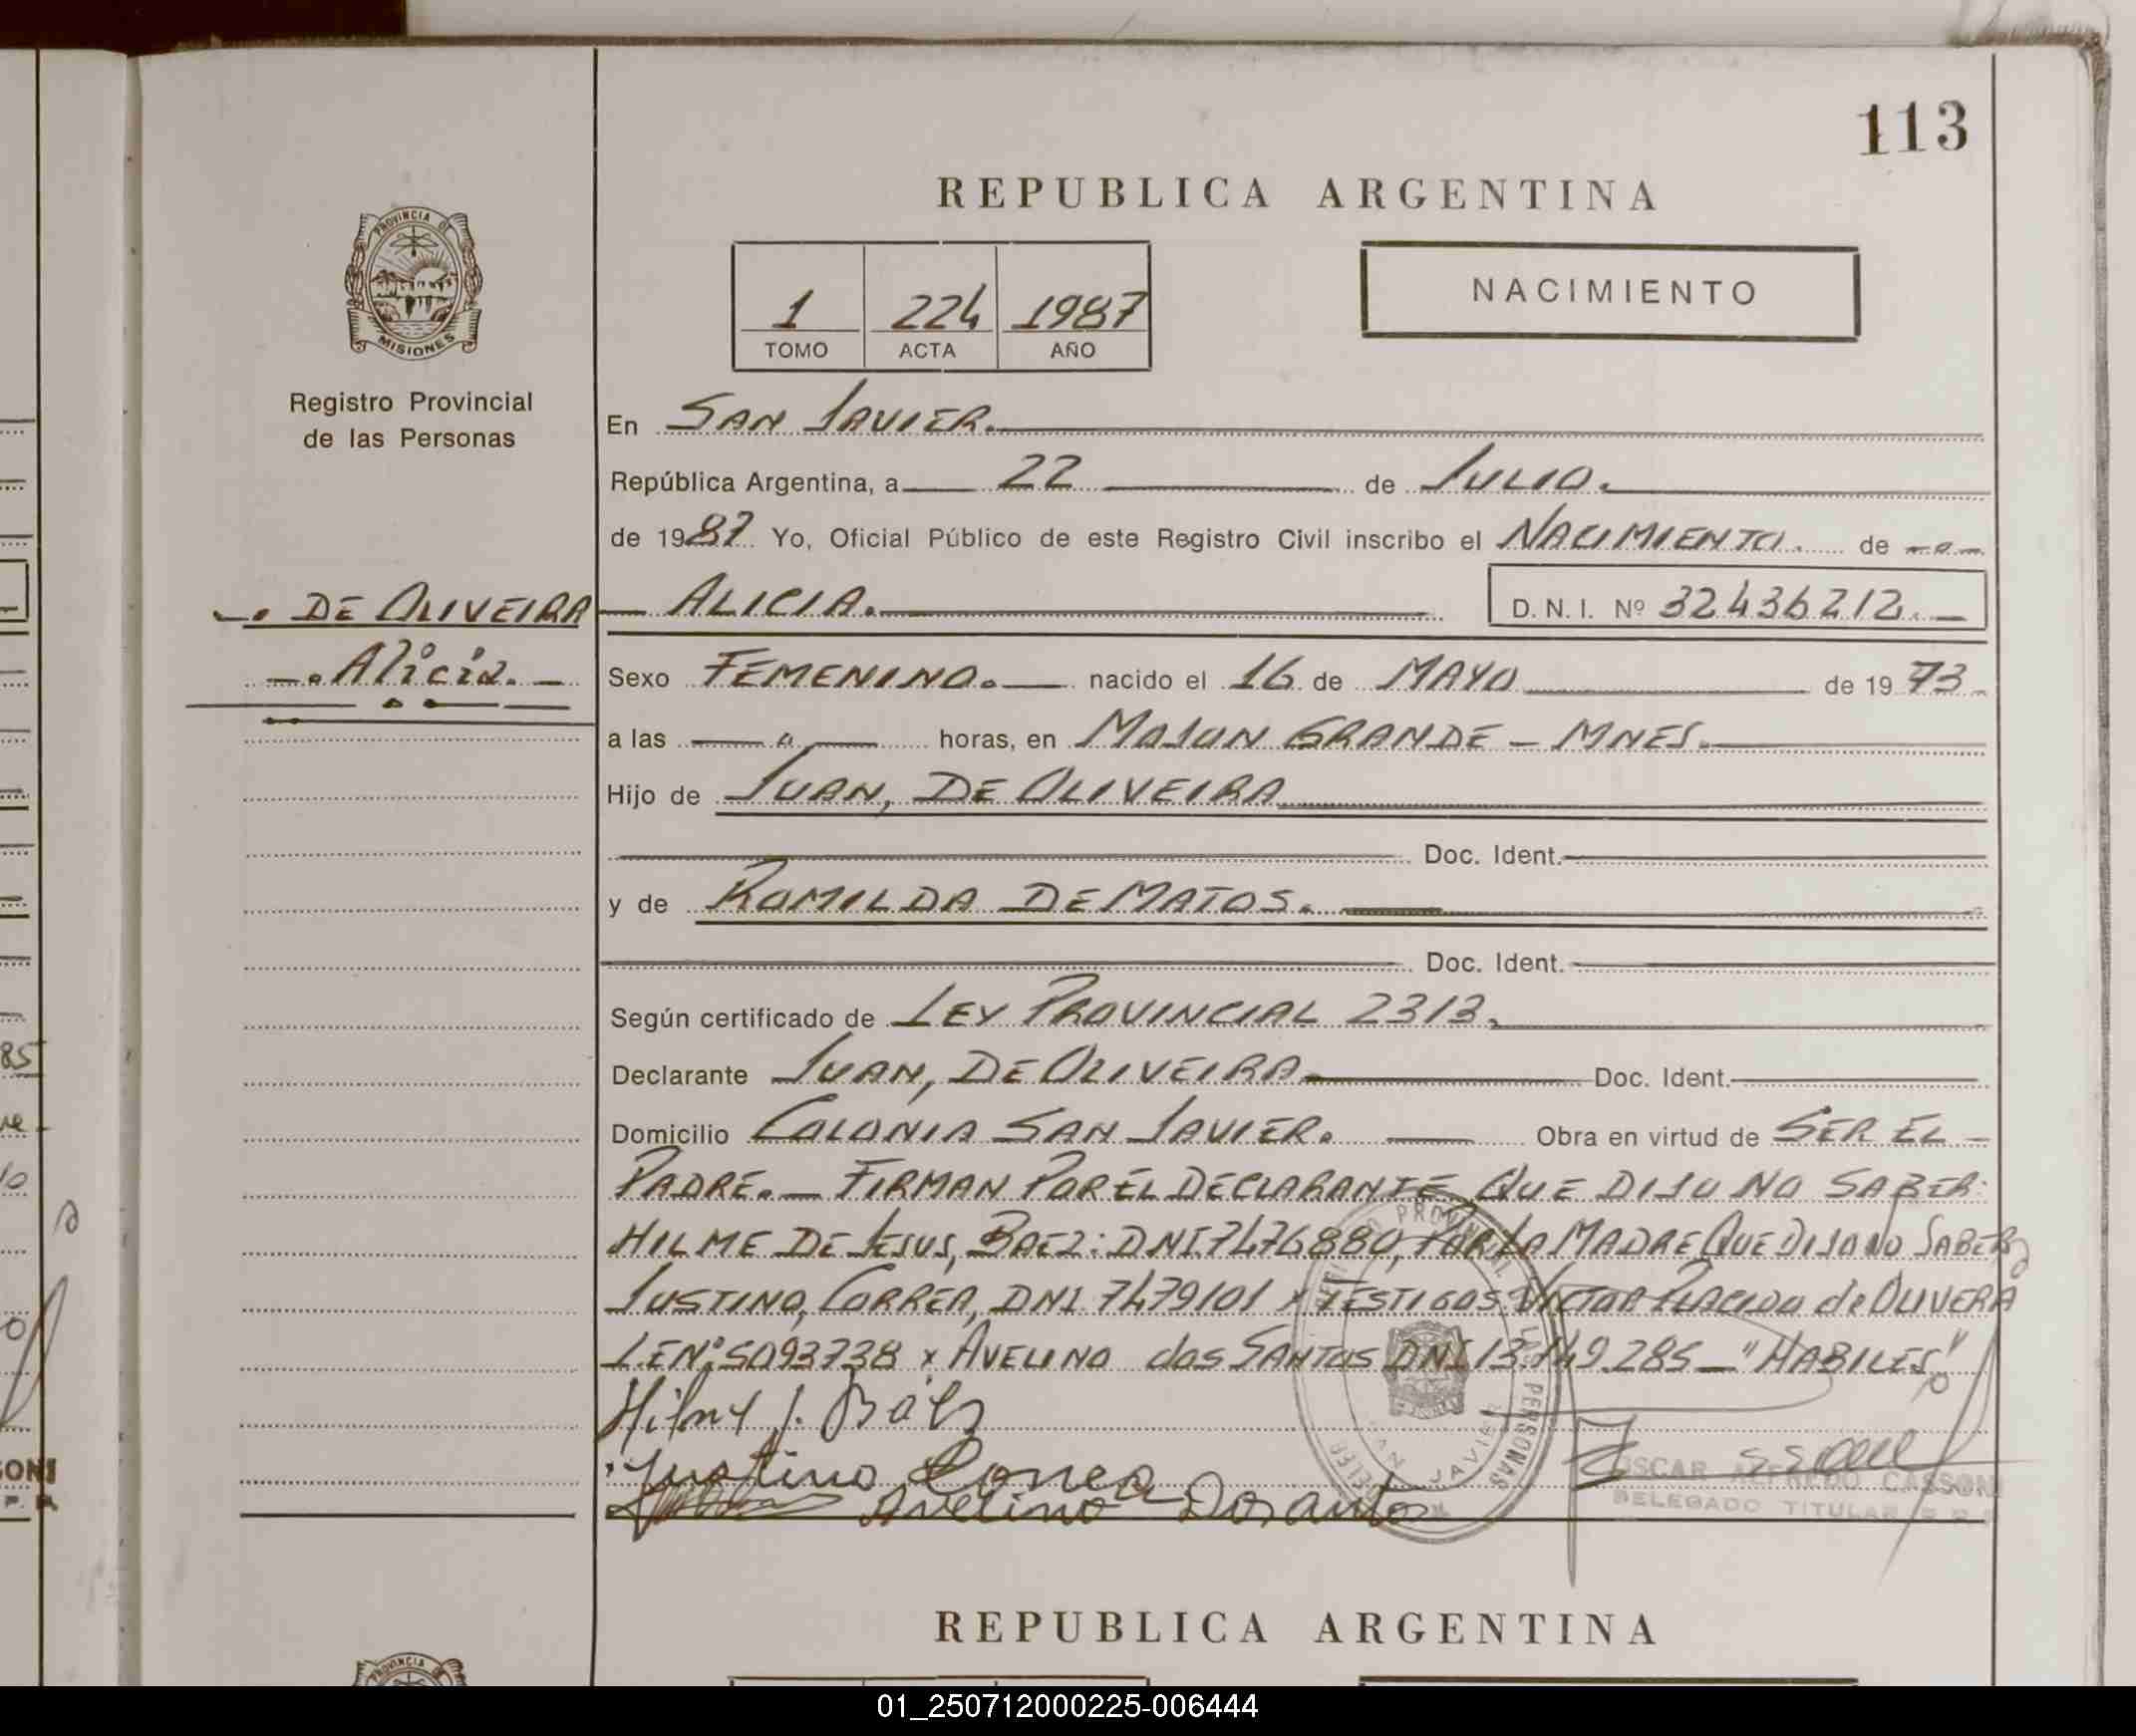 113
REPUBLICA ARGENTINA
1 224 1987
TOMO ACTA AÑO
NACIMIENTO
PROVINCIA DE
MISIONES
Registro Provincial
de las Personas
En SAN JAVIER.
República Argentina, a 22 de JULIO.
de 1987 Yo, Oficial Público de este Registro Civil inscribo el NACIMIENTO. de
DE OLIVEIRA ALICIA. D.N.I. Nº 32436212.
Alicia.
Sexo FEMENINO. nacido el 16 de MAYO de 1973
a las horas, en MOJON GRANDE - MNES.
Hijo de JUAN, DE OLIVEIRA
Doc. Ident.
y de ROMILDA DE MATOS.
Doc. Ident.
Según certificado de LEY PROVINCIAL 2313.
Declarante JUAN, DE OLIVEIRA Doc. Ident.
Domicilio COLONIA SAN JAVIER. Obra en virtud de SER EL
PADRE. FIRMAN POR EL DECLARANTE QUE DIJO NO SABER:
HILME DE JESUS, BAEZ: DNI 7476880, POR LA MADRE QUE DIJO NO SABER
JUSTINO, CORREA, DNI 7479101 x TESTIGOS VICTOR PLACIDO de OLIVERA
L.E Nº 5093738 x AVELINO dos SANTOS DNI 13.149.285 "HABILES"
Justino Correa
Avelino Dosanto
OSCAR ALFREDO CASSONI
DELEGADO TITULAR
REPUBLICA ARGENTINA
PROVINCIA DE
01_250712000225-006444